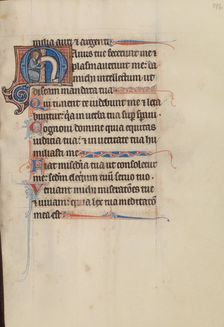 milia auri et argenti
Manus tue fecerunt me et
plasmauerunt me: da
michi intellectum ut
discam mandata tua
Qui timent te uidebunt me et leta
buntur: quia in uerba tua sup speraui.
Cognoui domine quia equitas
iudicia tua: et in ueritate tua hu
miliasti me
Fiat misedia tua ut consoletur
me: sedm eloquium tuum seruo tuo
Veniant michi miserationes tue
et uiuam: quia lex tua meditatio
mea est